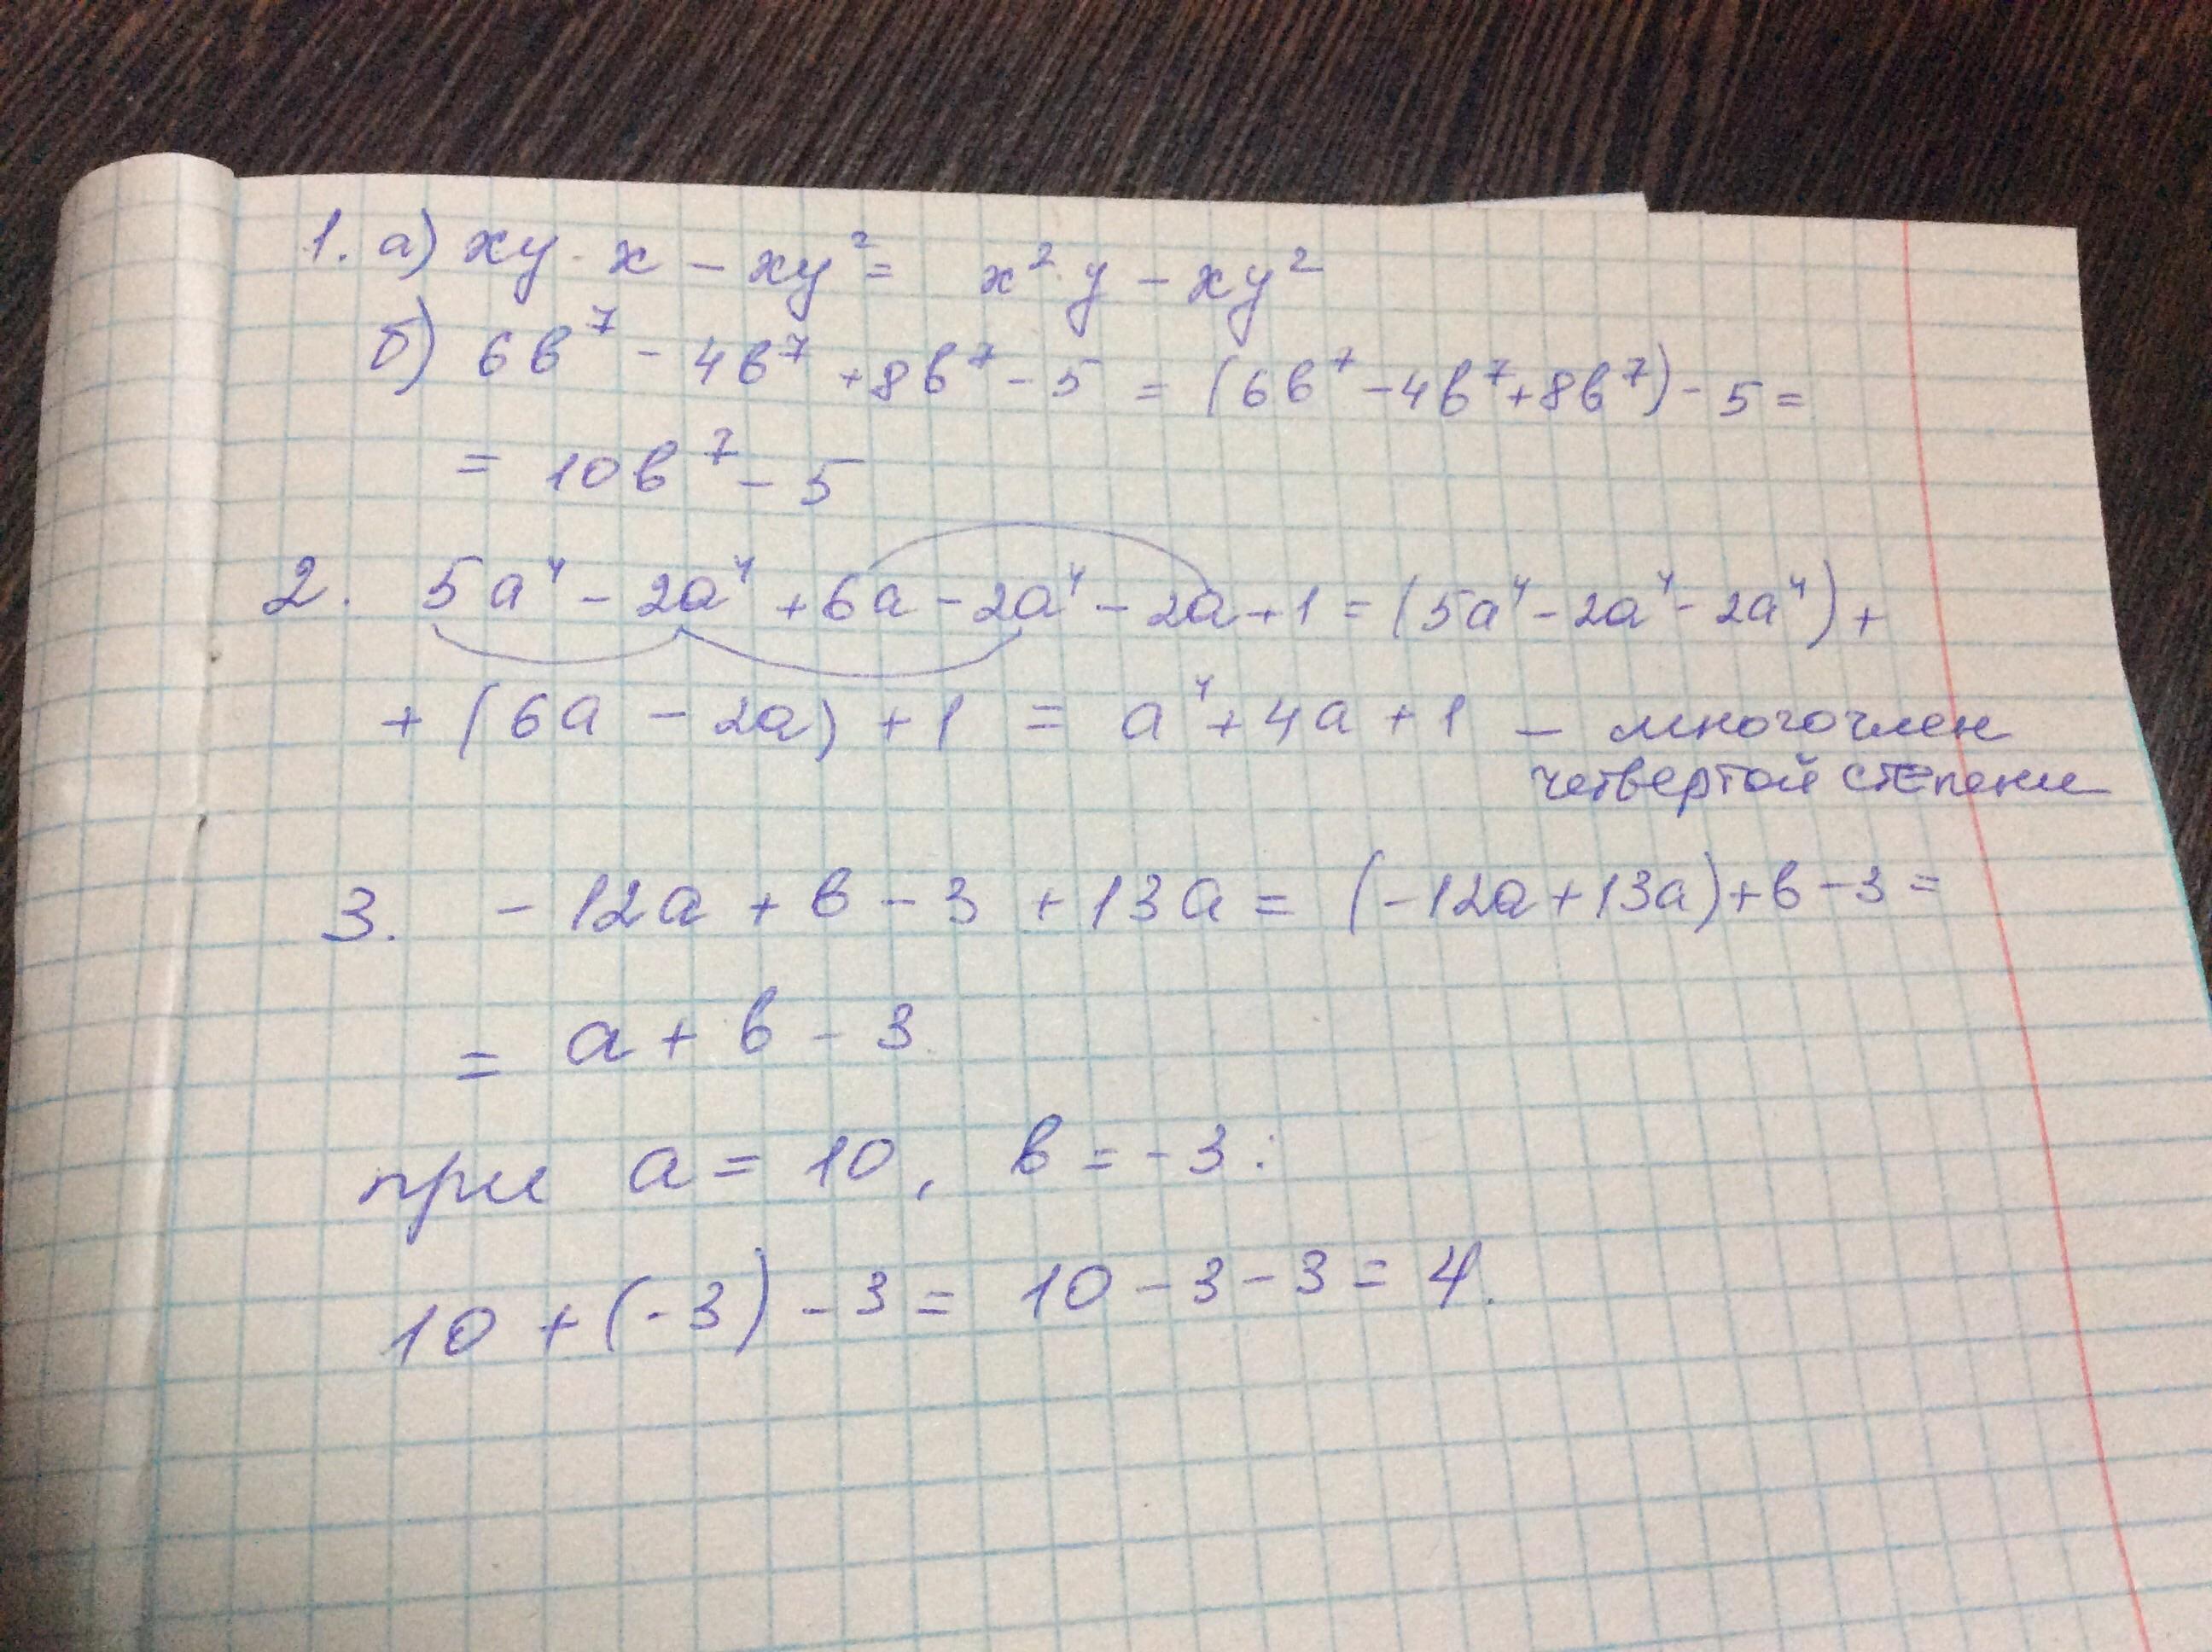 1. а) xy · x - xy² = x² · y - xy²
б) 6b⁷ - 4b⁷ + 8b⁷ - 5 = (6b⁷ - 4b⁷ + 8b⁷) - 5 =
= 10b⁷ - 5
2. 5a⁴ - 2a⁴ + 6a - 2a⁴ - 2a + 1 = (5a⁴ - 2a⁴ - 2a⁴) +
+ (6a - 2a) + 1 = a⁴ + 4a + 1 - многочлен
четвертой степени
3. - 12a + b - 3 + 13a = (-12a + 13a) + b - 3 =
= a + b - 3
при a = 10, b = -3:
10 + (-3) - 3 = 10 - 3 - 3 = 4.